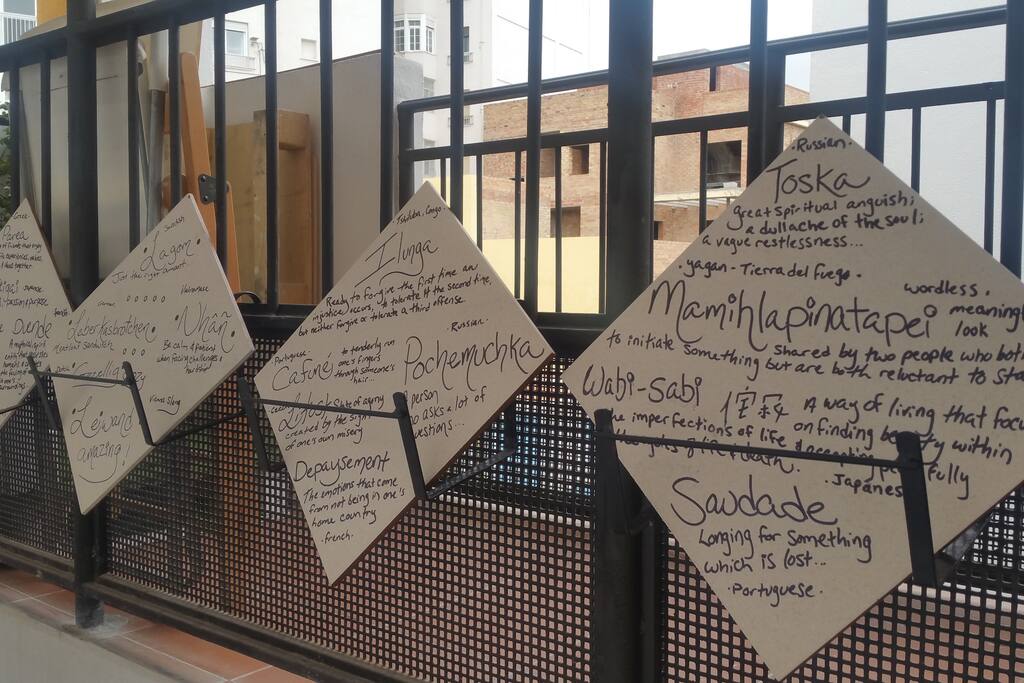 Greek
Parea
Duende
Swedish
Lagom
Just the right amount.
German
Vietnamese
Leberkasbrötchen
Meatloaf sandwich.
Nhân
Be calm & patient
when facing challenges /
Vienna Slang
Leiwand
amazing!
Tshiluba, Congo.
Ilunga
Ready to forgive the first time an
injustice occurs, to tolerate it the second time,
but neither forgive or tolerate a third offense.
·Russian·
Pochemuchka
person
asks a lot of
questions...
Portuguese
Cafuné
to tenderly run
one's fingers
through someone's
hair...
state of agony
created by the sight
of one's own misery
Depaysement
The emotions that come
from not being in one's
home country
·french·
·Russian·
Toska
great spiritual anguish;
a dull ache of the soul;
a vague restlessness...
·yagan - Tierra del fuego·
Mamihlapinatapei
wordless,
meaning
look
shared by two people who bot
to initiate something but are both reluctant to sta
Wabi-sabi
A way of living that focu
on finding beauty within
the imperfections of life
·Japanes
Saudade
Longing for something
which is lost...
·Portuguese·